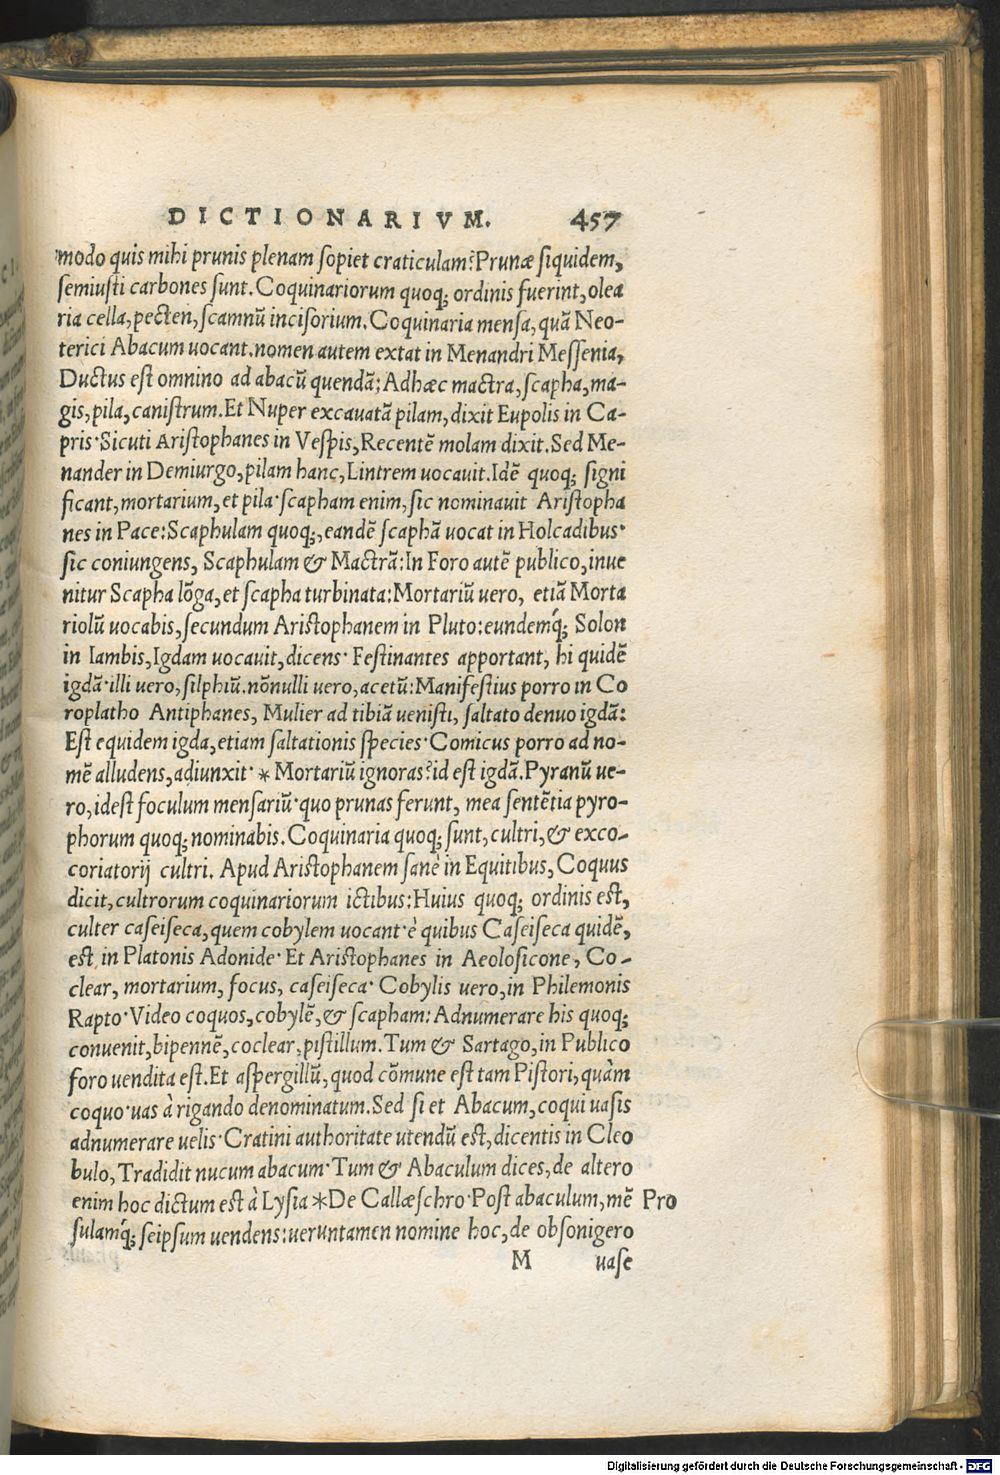 DICTIONARIVM. 457
modo quis mihi prunis plenam sopiet craticulam? Prunæ siquidem,
semiusti carbones sunt. Coquinariorum quoq; ordinis fuerint, olea
ria cella, pecten, scamnũ incisorium. Coquinaria mensa, quã Neo-
terici Abacum uocant. nomen autem extat in Menandri Messenia,
Ductus est omnino ad abacũ quendã; Adhæc mactra, scapha, ma-
gis, pila, canistrum. Et Nuper excauatã pilam, dixit Eupolis in Ca-
pris· Sicuti Aristophanes in Vespis, Recentẽ molam dixit. Sed Me-
nander in Demiurgo, pilam hanc, Lintrem uocauit. Idẽ quoq; signi
ficant, mortarium, et pila· scapham enim, sic nominauit Aristopha
nes in Pace: Scaphulam quoq;, eandẽ scaphã uocat in Holcadibus·
sic coniungens, Scaphulam & Mactrã: In Foro autẽ publico, inue
nitur Scapha lõga, et scapha turbinata: Mortariũ uero, etiã Morta
riolũ uocabis, secundum Aristophanem in Pluto: eundemq́; Solon
in Iambis, Igdam uocauit, dicens· Festinantes apportant, hi quidẽ
igdã· illi uero, silphiũ. nõnulli uero, acetũ: Manifestius porro in Co
roplatho Antiphanes, Mulier ad tibiã uenisti, saltato denuo igdã:
Est equidem igda, etiam saltationis species· Comicus porro ad no-
mẽ alludens, adiunxit· * Mortariũ ignoras? id est igdã. Pyranũ ue-
ro, idest foculum mensariũ· quo prunas ferunt, mea sentẽtia pyro-
phorum quoq; nominabis. Coquinaria quoq; sunt, cultri, & exco-
coriatorij cultri. Apud Aristophanem sanè in Equitibus, Coquus
dicit, cultrorum coquinariorum ictibus: Huius quoq; ordinis est,
culter caseiseca, quem cobylem uocant· è quibus Caseiseca quidẽ,
est in Platonis Adonide· Et Aristophanes in Aeolosicone, Co-
clear, mortarium, focus, caseiseca· Cobylis uero, in Philemonis
Rapto· Video coquos, cobylẽ, & scapham: Adnumerare his quoq;
conuenit, bipennẽ, coclear, pistillum. Tum & Sartago, in Publico
foro uendita est. Et aspergillũ, quod cõmune est tam Pistori, quàm
coquo· uas à rigando denominatum. Sed si et Abacum, coqui uasis
adnumerare uelis· Cratini authoritate utendũ est, dicentis in Cleo
bulo, Tradidit nucum abacum· Tum & Abaculum dices, de altero
enim hoc dictum est à Lysia * De Callæschro· Post abaculum, mẽ Pro
sulamq́; seipsum uendens: ueruntamen nomine hoc, de obsonigero
M uase
Digitalisierung gefördert durch die Deutsche Forschungsgemeinschaft - DFG